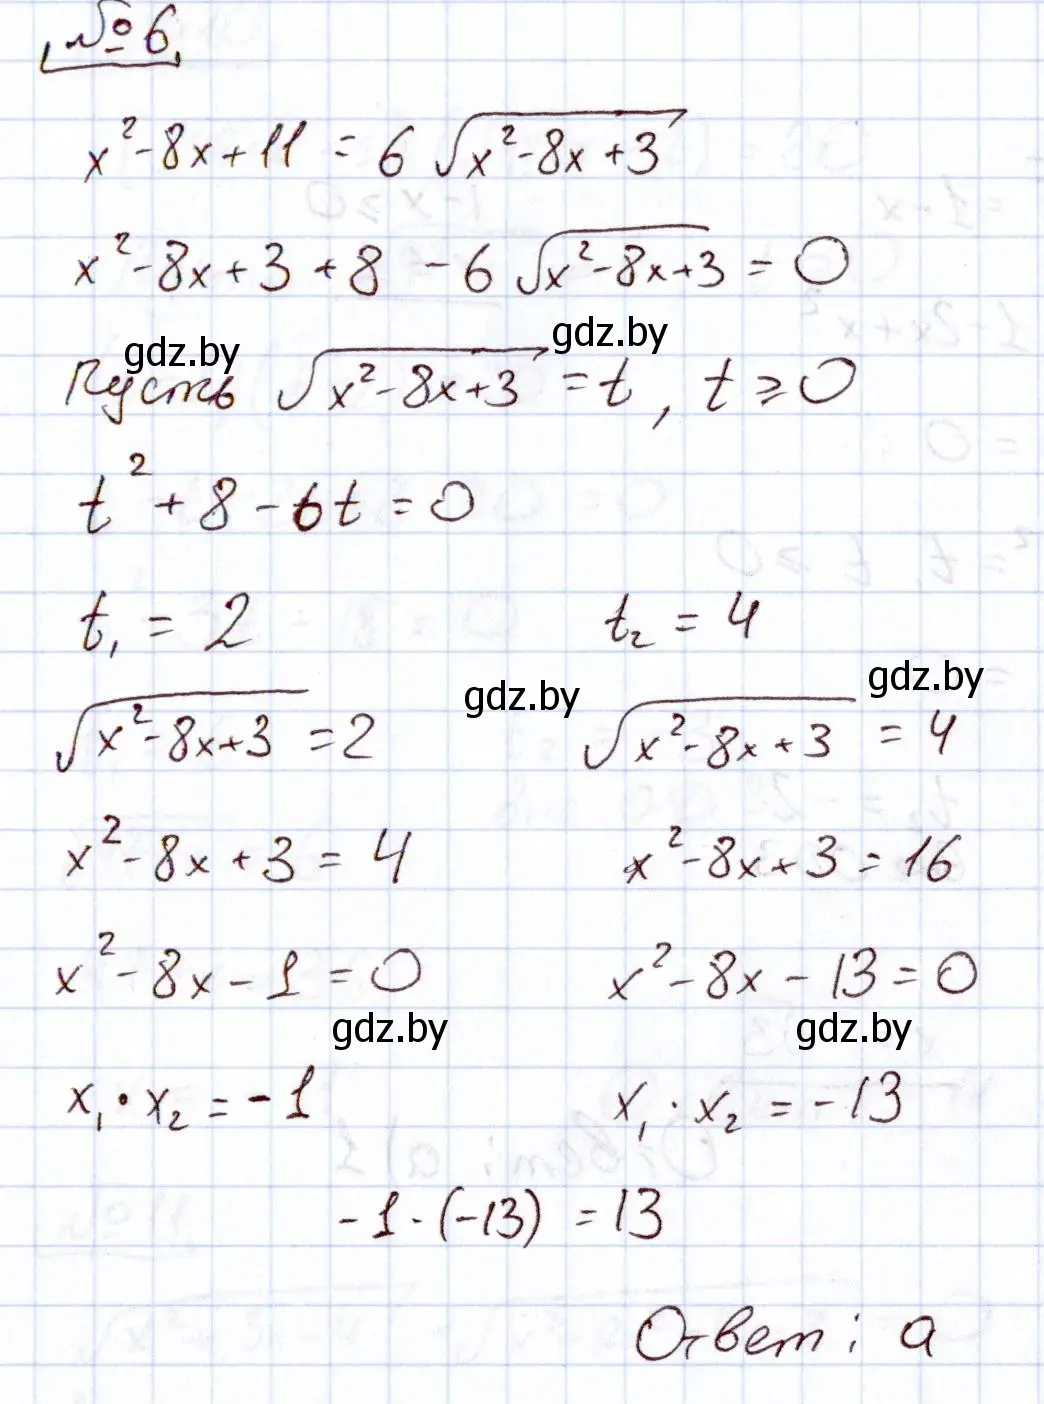 № 6
x² - 8x + 11 = 6 √(x² - 8x + 3)
x² - 8x + 3 + 8 - 6 √(x² - 8x + 3) = 0
gdz.by gdz.by
Пусть √(x² - 8x + 3) = t, t ≥ 0
t² + 8 - 6t = 0
t₁ = 2 t₂ = 4
gdz.by gdz.by
√(x² - 8x + 3) = 2 √(x² - 8x + 3) = 4
x² - 8x + 3 = 4 x² - 8x + 3 = 16
x² - 8x - 1 = 0 x² - 8x - 13 = 0
gdz.by gdz.by
x₁ · x₂ = -1 x₁ · x₂ = -13
-1 · (-13) = 13
Ответ: а